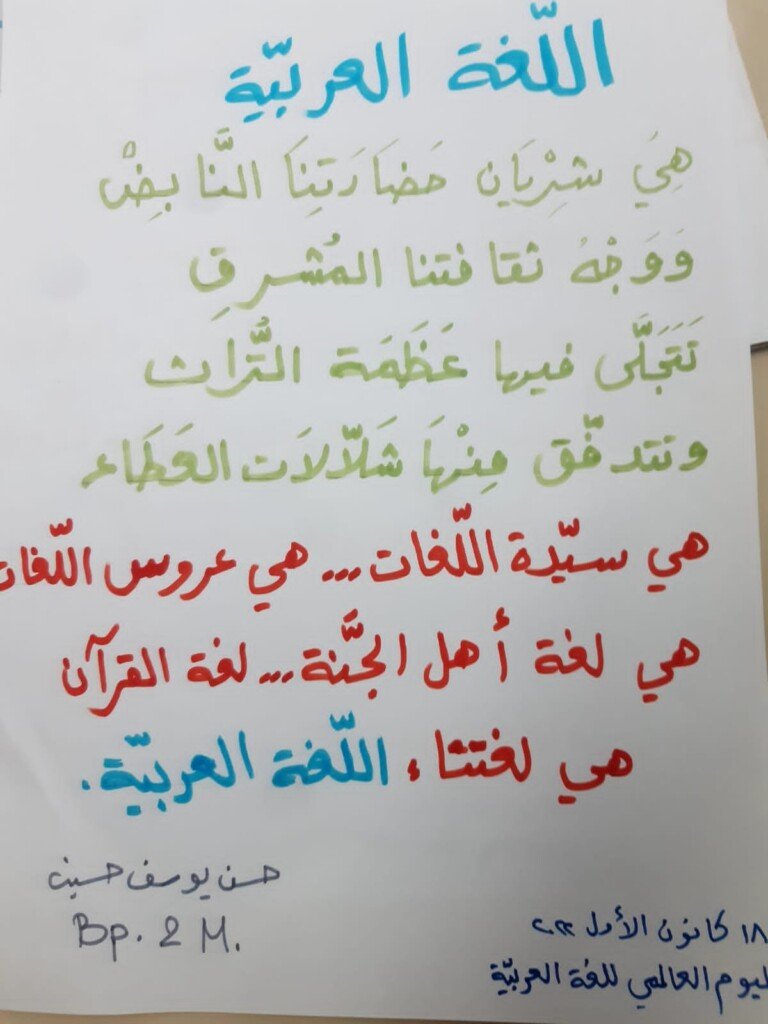 اللّغة العربيّة
هِيَ شِرْيَان حَضَارَتِنَا النَّابِضْ
وَوَجْهُ ثقافتنا المُشرقِ
تَتَجَلَّى فيها عَظَمَة التُّراث
وتتدفّق مِنْهَا شَلَّالَات العَطَاء
هي سيّدة اللّغات... هي عروس اللّغات
هي لغة أهل الجَّنة... لغة القرآن
هي لغتنا، اللّغة العربيّة.
حسن يوسف حسين
Bp. 2 M.
١٨ كانون الأول ٢٠٢٢
اليوم العالمي للغة العربيّة